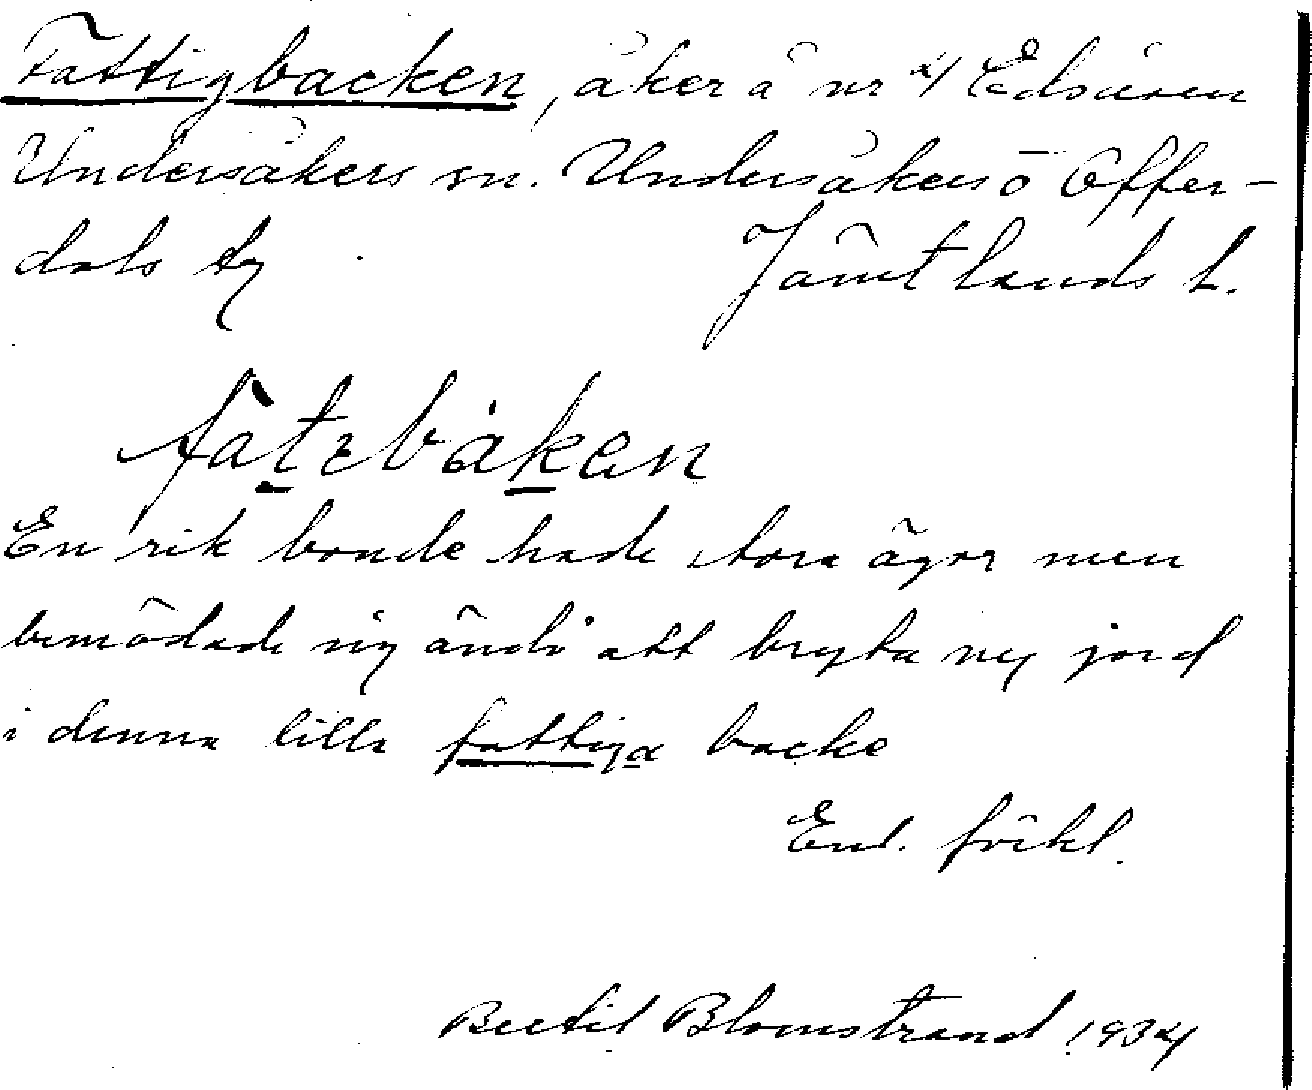 Fattigbacken, åker å nr 4 Edsåsen
Undersåkers sn. Undersåkers o Offer-
dals tg
Jämtlands l.
En rik bonde hade stora ägor men
bemödade sig ändå att bryta ny jord
i denna lilla fattiga backe
Enl. förkl.
Bertil Blomstrand 1934